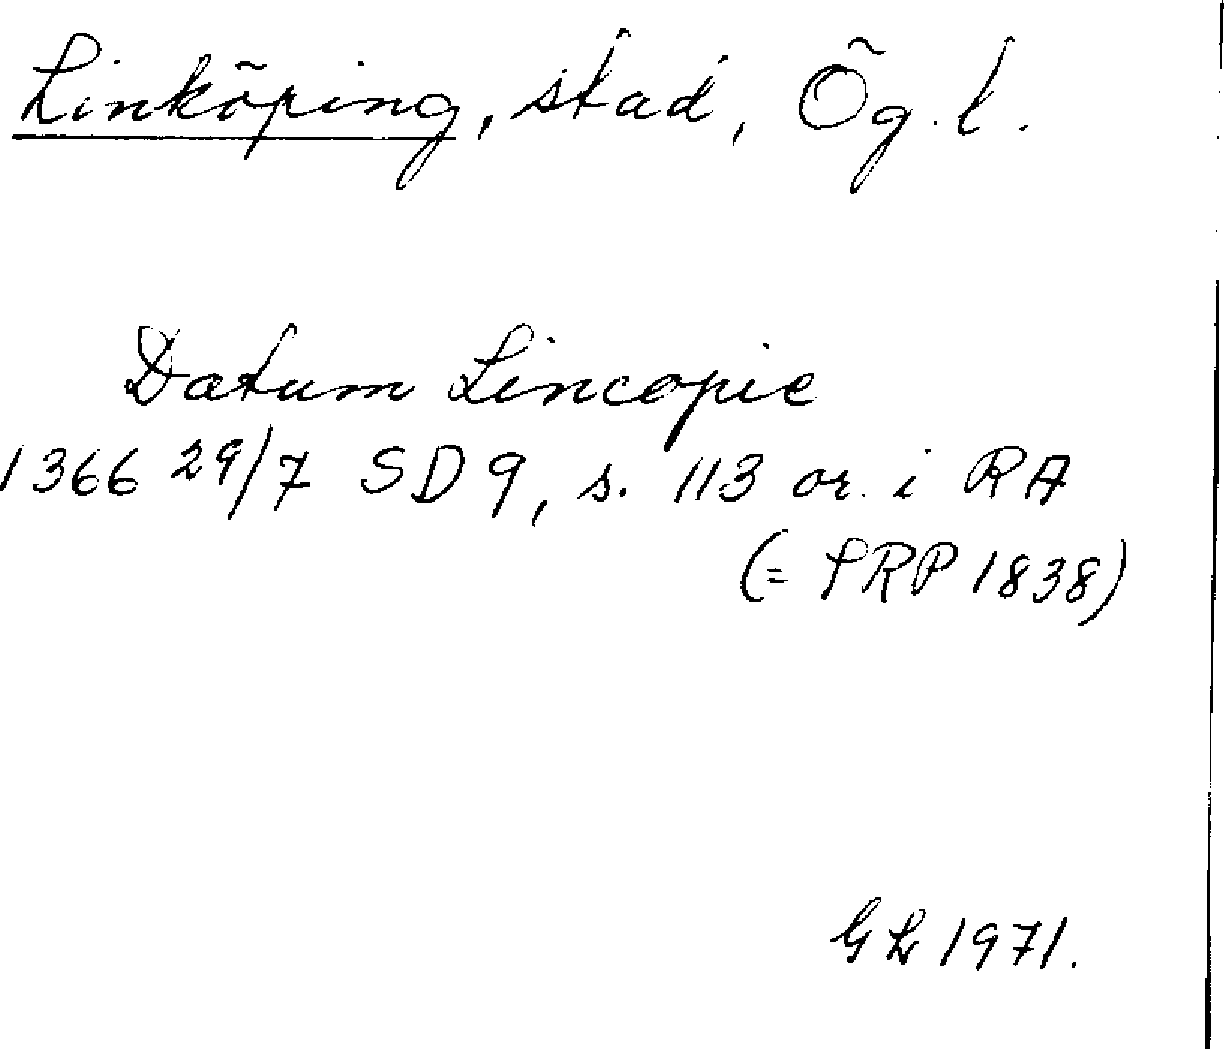 Linköping, stad, Ög. l.
Datum Lincopie
1366 29/7 SD 9, s. 113 or. i RA
(= PRP 1838)
GL 1971.